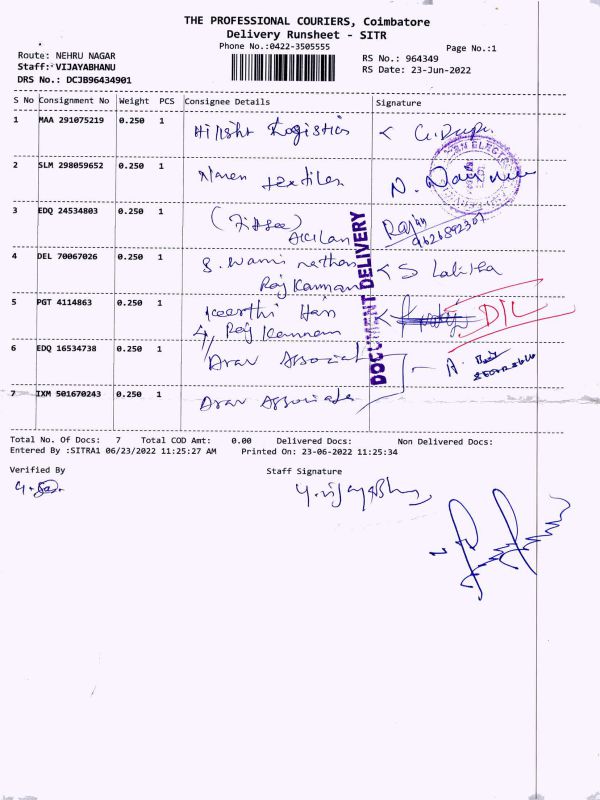 THE PROFESSIONAL COURIERS, Coimbatore
Delivery Runsheet - SITR
Phone No.:0422-3505555
Page No.:1
Route: NEHRU NAGAR
RS No.: 964349
Staff: VIJAYABHANU
RS Date: 23-Jun-2022
DRS No.: DCJB96434901
S No Consignment No Weight PCS Consignee Details Signature
1 MAA 291075219 0.250 1 Logistics
2 SLM 298059652 0.250 1 Naren textiles N.
3 EDQ 24534803 0.250 1 Rajan
9626892307
4 DEL 70067026 0.250 1 S. wami nathan S Lalitha
Raj Kannan
DOCUMENT DELIVERY
5 PGT 4114863 0.250 1 Keerthi Hari DIL
Raj Kannan
6 EDQ 16534738 0.250 1 Arav Associat A.
7 IXM 501670243 0.250 1 Arav Associate
Total No. Of Docs: 7 Total COD Amt: 0.00 Delivered Docs: Non Delivered Docs:
Entered By :SITRA1 06/23/2022 11:25:27 AM Printed On: 23-06-2022 11:25:34
Verified By Staff Signature